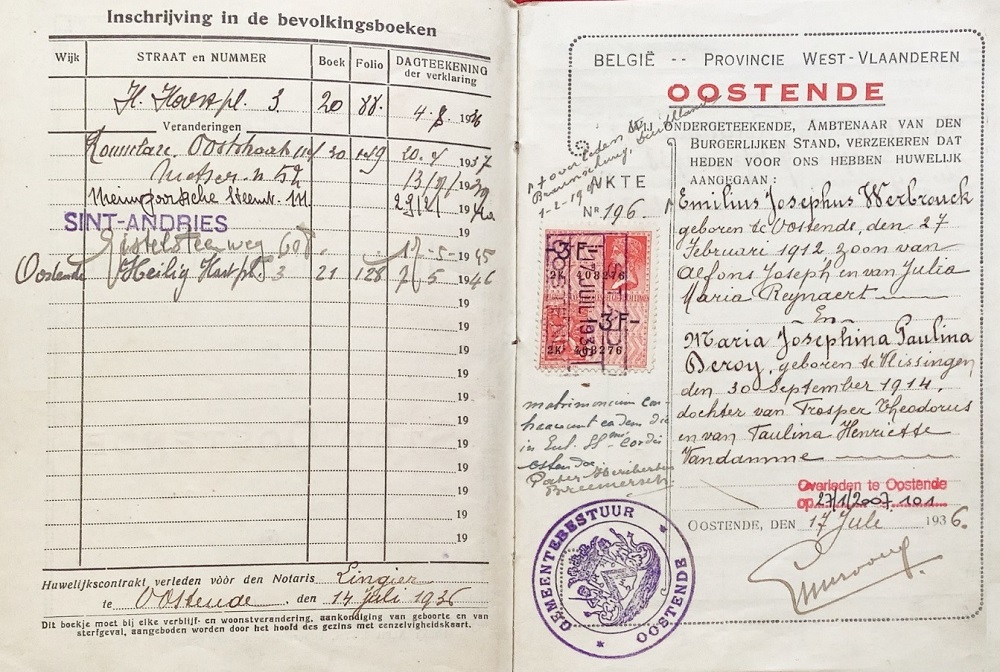 Inschrijving in de bevolkingsboeken
Wijk STRAAT en NUMMER Boek Folio DAGTEEKENING der verklaring
H. Hartpl. 3 20 88 4-8-1936
Veranderingen
20 1937
13/9/1939
Steenw. 29/2/1940
SINT-ANDRIES
Gistelsteenweg 608 17-5-1945
Oostende Heilig Hartpl. 3 21 128 7-5 1946
19
19
19
19
19
19
19
19
19
19
19
Huwelijkscontract verleden vòòr den Notaris Lingier
te Oostende, den 14 Juli 1936
Dit boekje moet bij elke verblijf- en woonstverandering, aankondiging van geboorte en van
sterfgeval, aangeboden worden door het hoofd des gezins met eenzelvigheidskaart.
BELGIË -- PROVINCIE WEST-VLAANDEREN
OOSTENDE
WIJ ONDERGETEEKENDE, AMBTENAAR VAN DEN
BURGERLIJKEN STAND, VERZEKEREN DAT
HEDEN VOOR ONS HEBBEN HUWELIJK
AANGEGAAN :
overleden te
Braunschweig, Duitschland
1-2-19
AKTE
Nr 196.
Emilius Josephus Werbrouck
geboren te Oostende, den 27
Februari 1912 zoon van
Alfons Joseph en van Julia
Maria Reynaert
En
Maria Josephina Paulina
Deroy, geboren te Vlissingen
den 30 September 1914,
dochter van Prosper Theodorus
en van Paulina Henriette
Vandamme
3 F-
2K 408276
17 JUIL 193
3 F-
2K 408276
matrimonium con-
traxerunt eadem die
in Eccl. SSmi Cordis
Ostendae
Pater Heribertus
Overleden te Oostende
op 27/1/2007 101
OOSTENDE, DEN 17 Juli 1936.
GEMEENTEBESTUUR
OOSTENDE